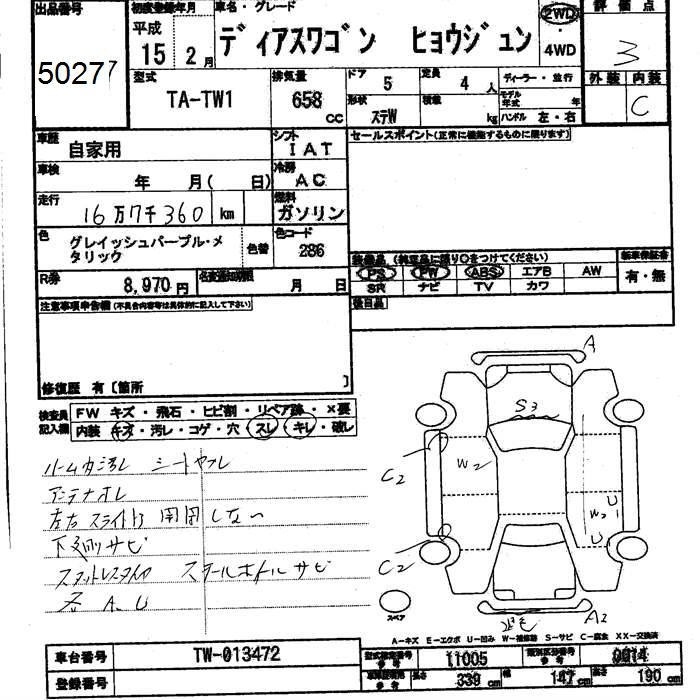 出品番号 50277
初度登録年月 平成 15 2月
車名・グレード ディアスワゴン ヒョウジュン
2WD・4WD
評価点 3
外装 内装 C
型式 TA-TW1
排気量 658 CC
ドア 5
定員 4 人
形状 ステW
積載 kg
ディーラー・並行
モデル年式 年
ハンドル 左・右
車歴 自家用
シフト IAT
車検 年 月( 日)
冷房 AC
走行 16万7千360 km
燃料 ガソリン
色 グレイッシュパープル・メタリック
色替
色コード 286
R券 8,970円
名変通知期限 月 日
セールスポイント(正常に機能するものに限ります)
装備品 (検定品に限り○をつけてください)
PS PW ABS エアB AW
SR ナビ TV カワ
新車保証書 有・無
後日品
注意事項申告欄(不具合内容等は具体的に記入して下さい)
修復歴 有〔箇所 〕
検査員記入欄
FW キズ・飛石・ヒビ割・リペア跡・×要
内装 キズ・汚レ・コゲ・穴・スレ・キレ・破レ
ルーム内汚レ シートヤブレ
アンテナオレ
左右スライドドア 開閉しない
下廻サビ
スタットレスタイヤ スチールホイルサビ
各 A、U
A
S3
W2
C2
C2
U
W2
U
A2
スペア
A-キズ E-エクボ U-凹み W-補修跡 S-サビ C-腐食 XX-交換済
車台番号 TW-013472
型式指定番号 参考 11005
類別区分番号 参考 0014
登録番号
車両寸法 参考 長さ 339 cm 幅 147 cm 高さ 190 cm